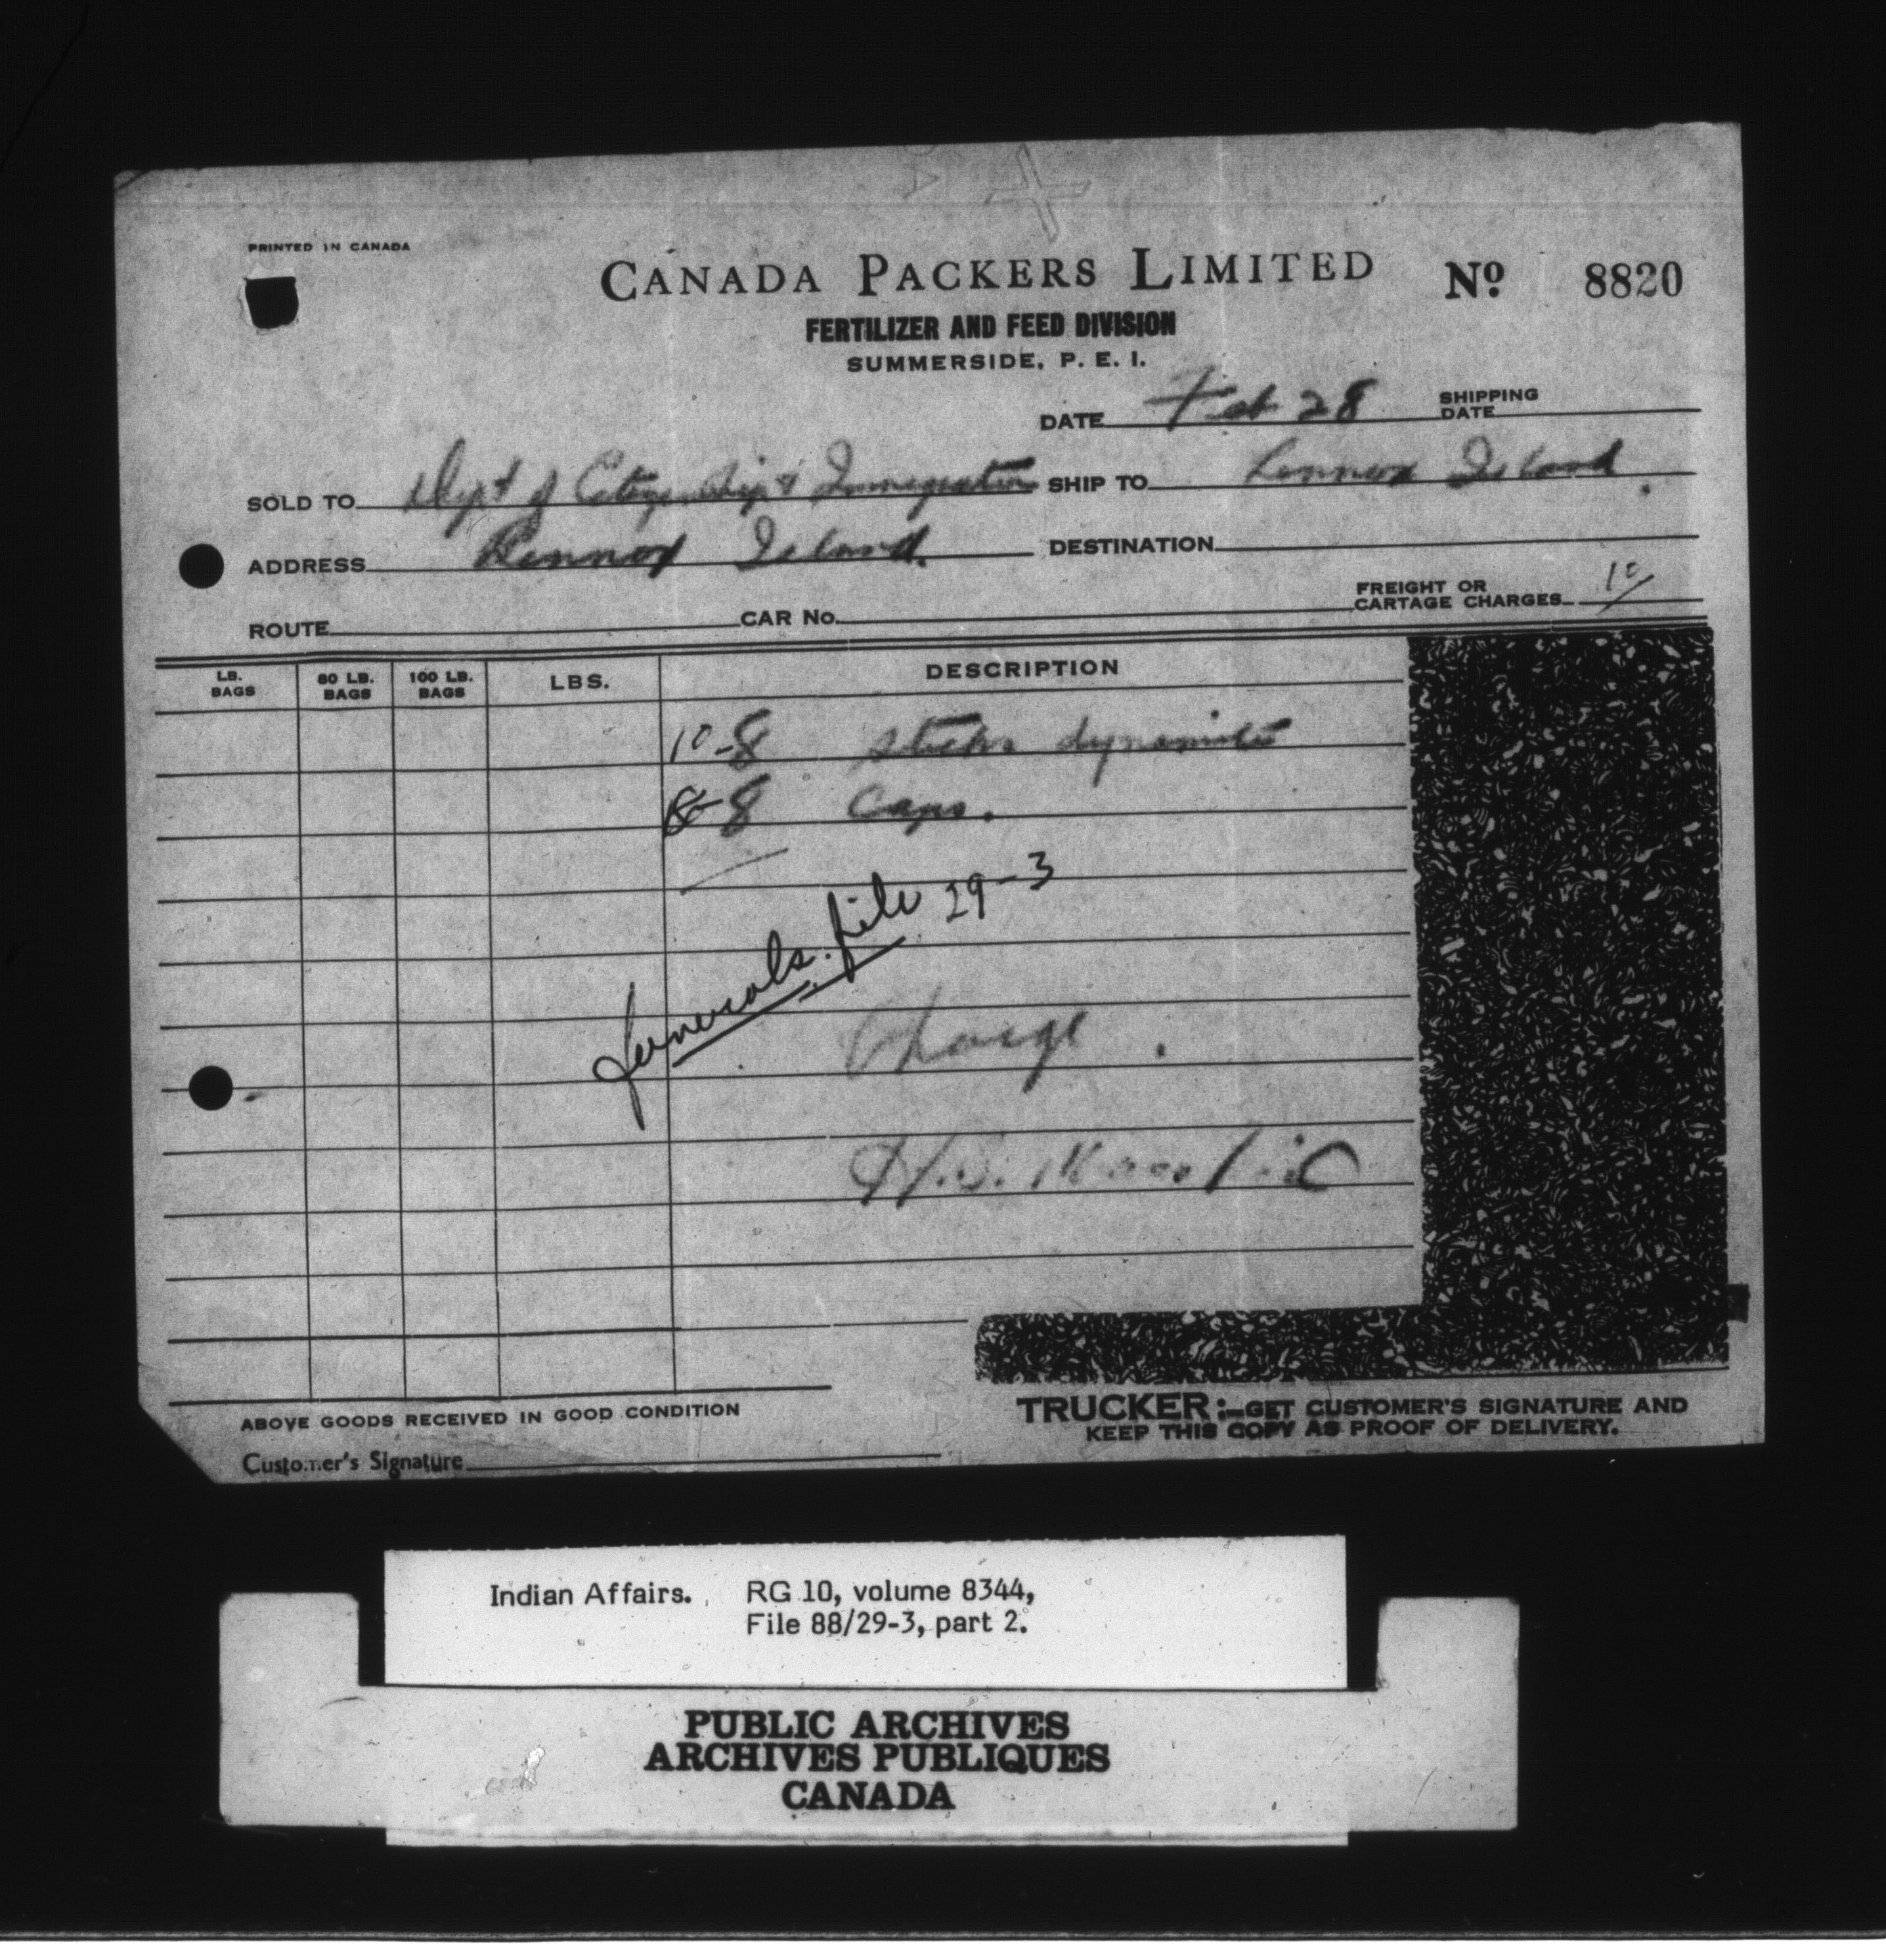 PRINTED IN CANADA
CANADA PACKERS LIMITED Nº 8820
FERTILIZER AND FEED DIVISION
SUMMERSIDE, P. E. I.
DATE Feb 28 SHIPPING DATE
SOLD TO Dept of Citizenship & Immigration SHIP TO Lennox Island.
ADDRESS Lennox Island. DESTINATION
ROUTE CAR No. FREIGHT OR CARTAGE CHARGES
LB. BAGS 80 LB. BAGS 100 LB. BAGS LBS. DESCRIPTION
10-8 sticks dynamite
8 caps.
funerals. file 29-3
Charge.
ABOVE GOODS RECEIVED IN GOOD CONDITION
Customer's Signature
TRUCKER:—GET CUSTOMER'S SIGNATURE AND
KEEP THIS COPY AS PROOF OF DELIVERY.
Indian Affairs. RG 10, volume 8344,
File 88/29-3, part 2.
PUBLIC ARCHIVES
ARCHIVES PUBLIQUES
CANADA